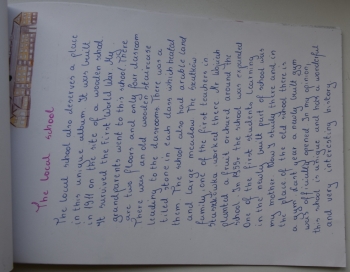 The local school
The local school also deserves a place
in this unique album. It was built
in 1911 on the site of a wooden school.
It survived the First World War. My
grandparents went to this school. There
are two floors and only four classroom
There was an old wooden staircase
leading to the classrooms. There was a
tiled stone in each class which heated
them. The school also had arable land
and large meadow. The
family, one of the first teachers in
worked there. Mr
planted a fruit orchard around the
school. In 1995 the school was expanded
One of the first students learning
in the newly built part of school was
my mother. Now I study there and in
the place of the old school there is
a gym. Last year a newly built gym
was officially opened. In my opinion,
this school is unique and has a wonderful
and very interesting history